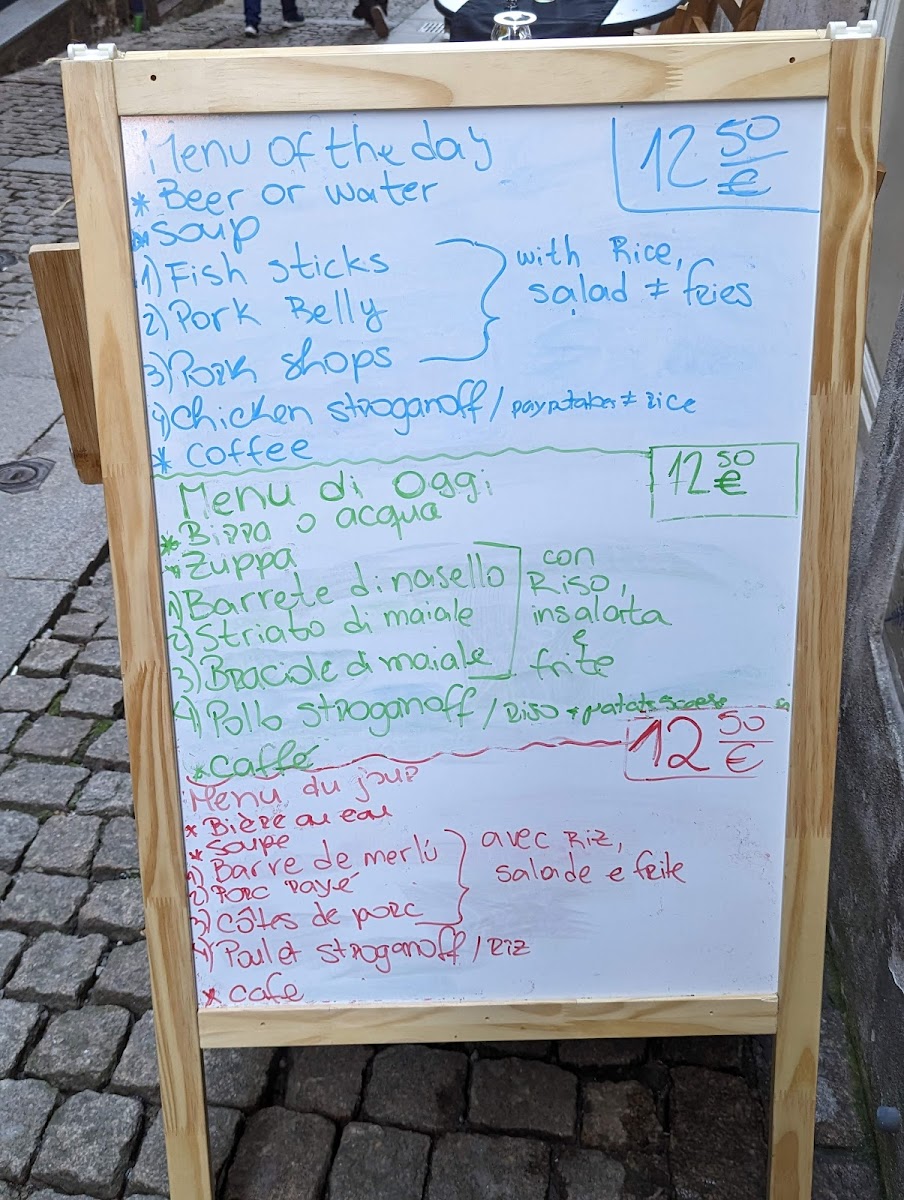 Menu of the day
12 50 €
* Beer or water
* Soup
1) Fish sticks
2) Pork Belly
3) Pork shops
with Rice,
salad ≠ fries
4) Chicken stroganoff / ≠ rice
* Coffee
Menu di Oggi
12 50 €
* Birra o acqua
* Zuppa
1) Barrete di nasello
2) Striato di maiale
3) Braciole di maiale
con
Riso,
insalata
e
frite
4) Pollo stroganoff / Riso
* Caffé
12 50 €
Menu du jour
* Bière ou eau
* Soupe
1) Barre de merlú
2) Porc rayé
3) Côtes de porc
avec Riz,
salade e frite
4) Poulet stroganoff / Riz
* cafe